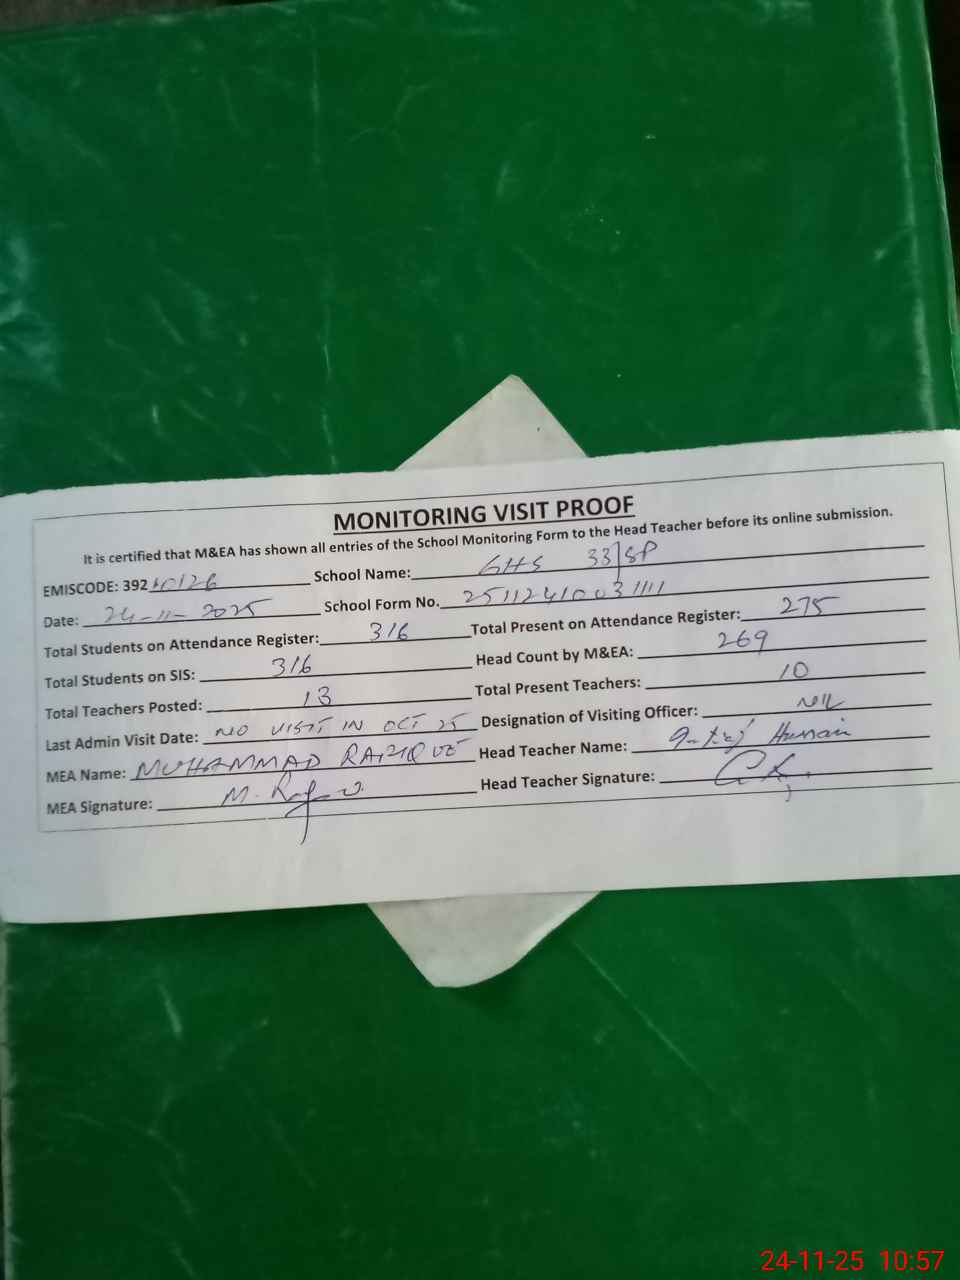 MONITORING VISIT PROOF
It is certified that M&EA has shown all entries of the School Monitoring Form to the Head Teacher before its online submission.
EMISCODE: 39210126 School Name: GHS 33/SP
Date: 24-11-2025 School Form No. 25112410031111
Total Students on Attendance Register: 316 Total Present on Attendance Register: 275
Total Students on SIS: 316 Head Count by M&EA: 269
Total Teachers Posted: 13 Total Present Teachers: 10
Last Admin Visit Date: NO VISIT IN OCT 25 Designation of Visiting Officer: NIL
MEA Name: MUHAMMAD RAFIQUE Head Teacher Name: Hussain
MEA Signature: Head Teacher Signature:
24-11-25 10:57